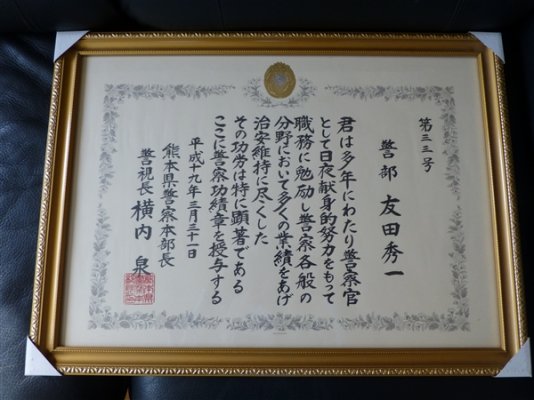 第三三号
警部 友田秀一
君は多年にわたり警察官
として日夜献身的努力をもって
職務に勉励し警察各般の
分野において多くの業績をあげ
治安維持に尽くした
その功労は特に顕著である
ここに警察功績章を授与する
平成十九年三月三十一日
熊本県警察本部長
警視長 横内 泉